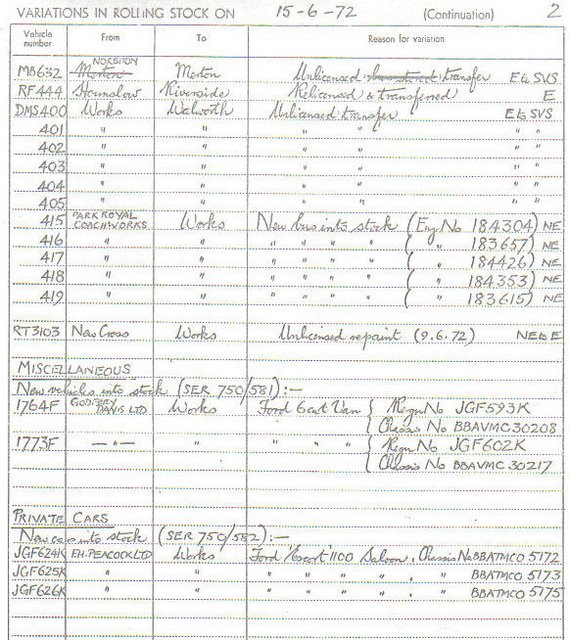 VARIATIONS IN ROLLING STOCK ON 15-6-72 (Continuation) 2
Vehicle number From To Reason for variation
NORBITON
MB632 Merton Merton Unlicensed transfer E to SVS
RF444 Hounslow Riverside Relicensed & transferred E
DMS400 Works Walworth Unlicensed transfer E to SVS
401 " " " " " "
402 " " " " " "
403 " " " " " "
404 " " " " " "
405 " " " " " "
415 PARK ROYAL COACHWORKS Works New bus into stock (Eng No 184304) NE
416 " " " " " " ( " 183657) NE
417 " " " " " " ( " 184426) NE
418 " " " " " " ( " 184353) NE
419 " " " " " " ( " 183615) NE
RT3103 New Cross Works Unlicensed repaint (9.6.72) NE to E
MISCELLANEOUS
New vehicles into stock (SER 750/581):—
1764F GODFREY DAVIS LTD Works Ford Escort Van { Regn No JGF593K
Chassis No BBAVMC30208
1773F —"— " " " " { Regn No JGF602K
Chassis No BBAVMC30217
PRIVATE CARS
New cars into stock (SER 750/582):—
JGF624K F.H. PEACOCK LTD Works Ford 'Escort' 1100 Saloon, Chassis No BBATMCO 5172
JGF625K " " " " " " " " BBATMCO 5173
JGF626K " " " " " " " " BBATMCO 5175